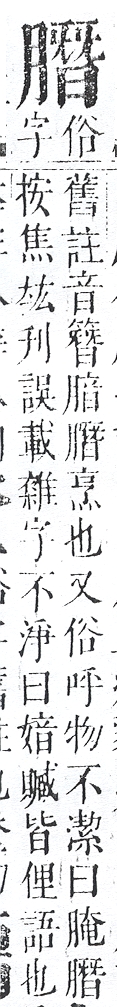 䐶
俗
字
舊註音簪腤䐶烹也又俗呼物不潔曰腌䐶
按焦竑刋誤載雜字不淨曰媕贓皆俚語也